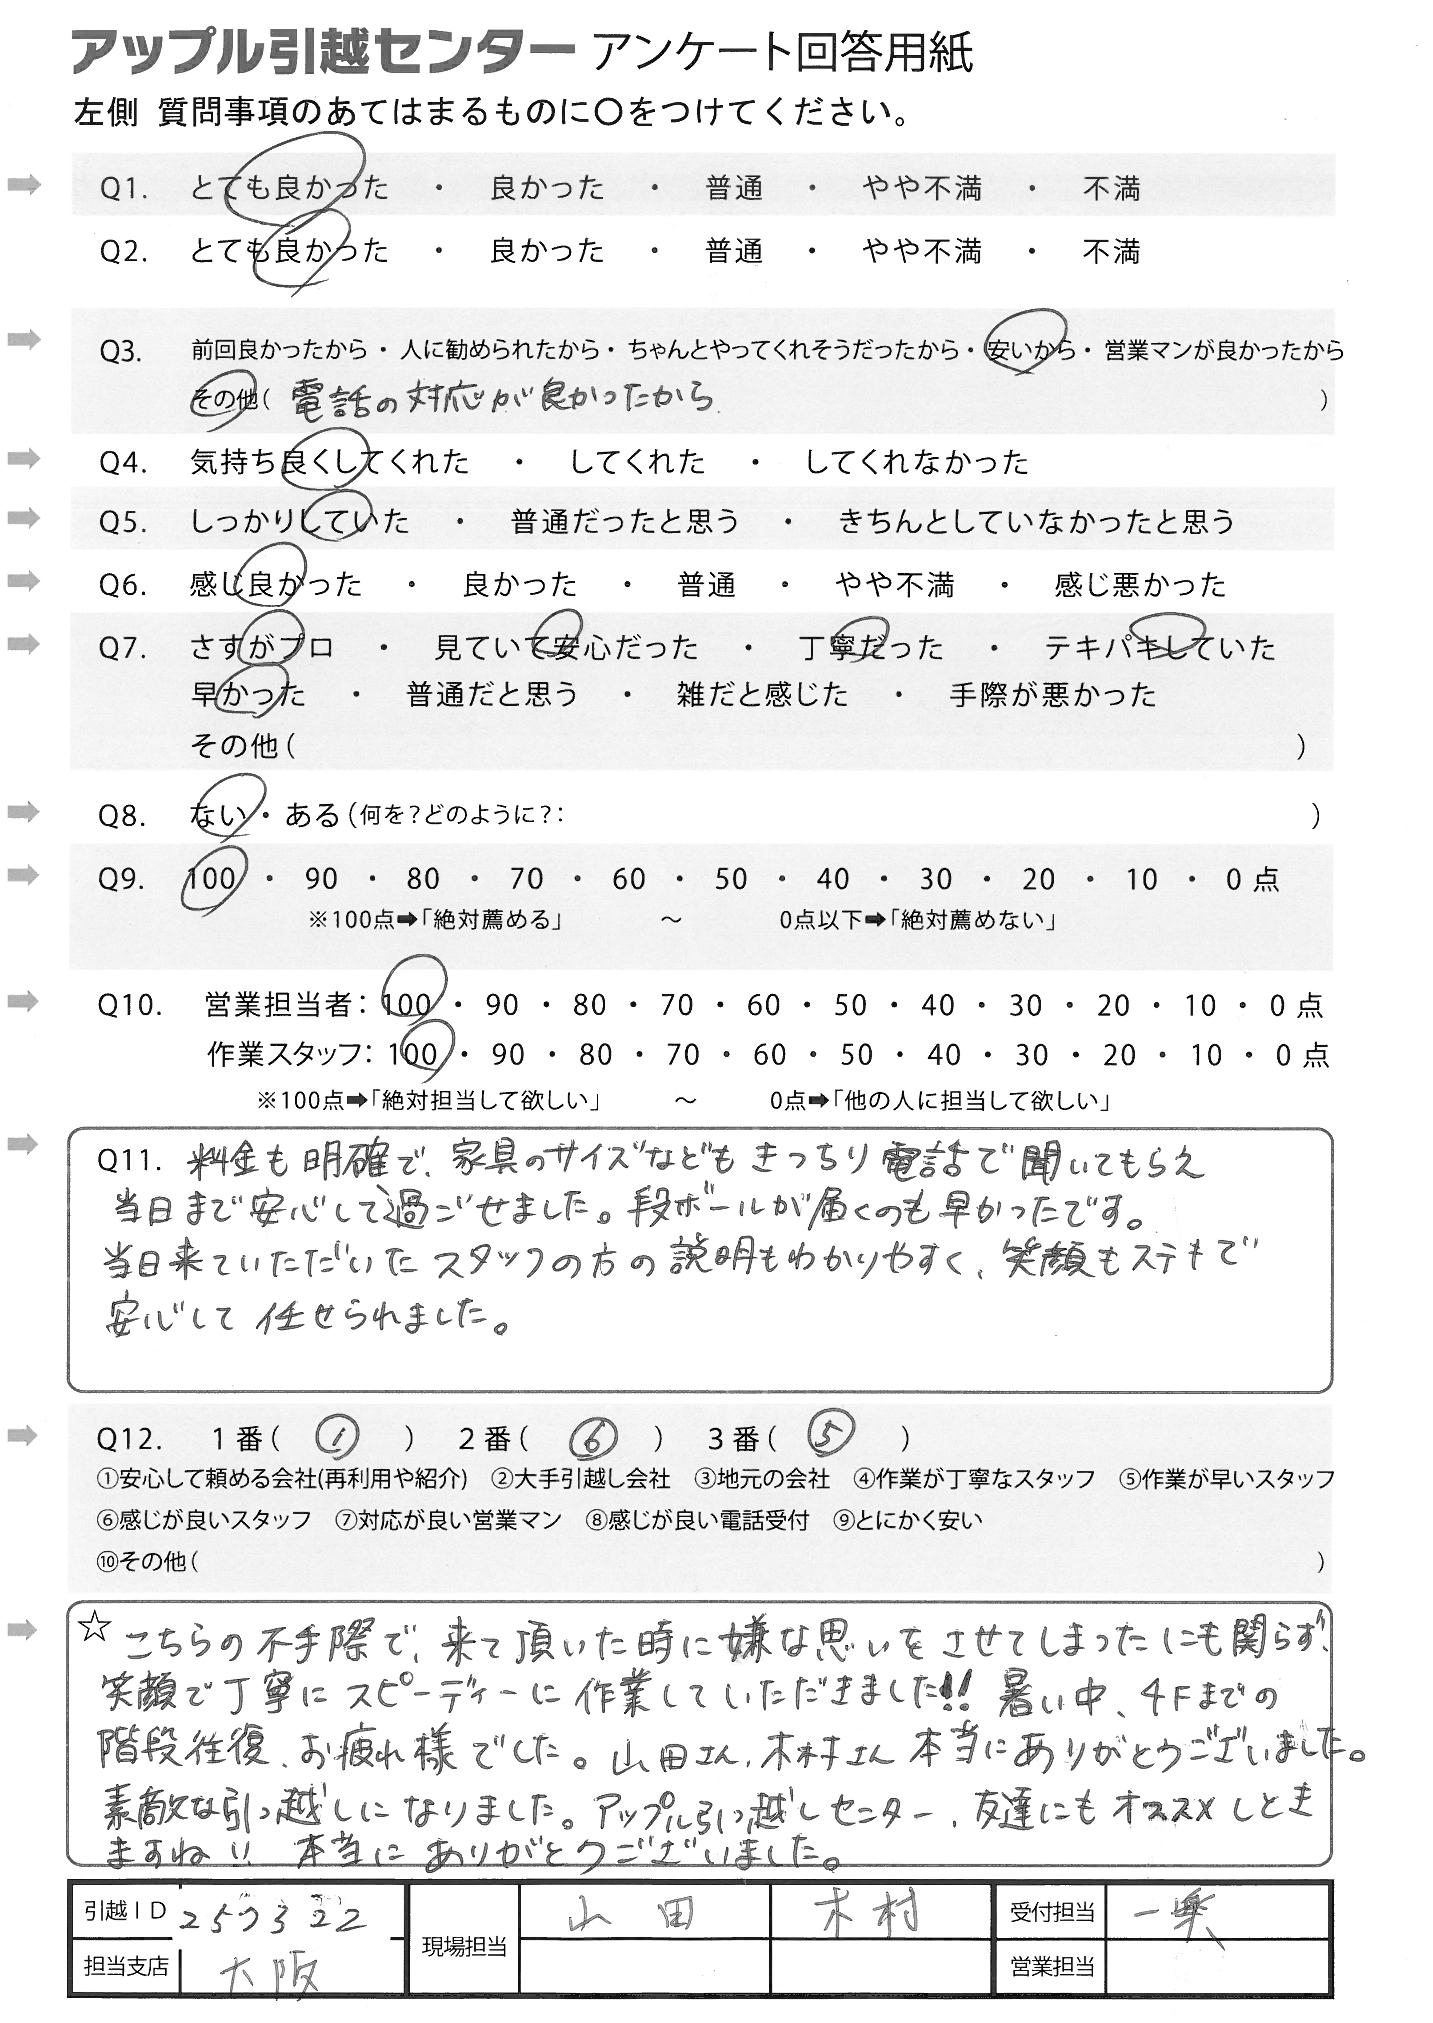 アップル引越センター アンケート回答用紙
左側 質問事項のあてはまるものに○をつけてください。
Q1. とても良かった ・ 良かった ・ 普通 ・ やや不満 ・ 不満
Q2. とても良かった ・ 良かった ・ 普通 ・ やや不満 ・ 不満
Q3. 前回良かったから・人に勧められたから・ちゃんとやってくれそうだったから・安いから・営業マンが良かったから
その他( 電話の対応が良かったから )
Q4. 気持ち良くしてくれた ・ してくれた ・ してくれなかった
Q5. しっかりしていた ・ 普通だったと思う ・ きちんとしていなかったと思う
Q6. 感じ良かった ・ 良かった ・ 普通 ・ やや不満 ・ 感じ悪かった
Q7. さすがプロ ・ 見ていて安心だった ・ 丁寧だった ・ テキパキしていた
早かった ・ 普通だと思う ・ 雑だと感じた ・ 手際が悪かった
その他( )
Q8. ない・ある(何を?どのように?: )
Q9. 100 ・ 90 ・ 80 ・ 70 ・ 60 ・ 50 ・ 40 ・ 30 ・ 20 ・ 10 ・ 0 点
※100点➡「絶対薦める」 ~ 0点以下➡「絶対薦めない」
Q10. 営業担当者: 100 ・ 90 ・ 80 ・ 70 ・ 60 ・ 50 ・ 40 ・ 30 ・ 20 ・ 10 ・ 0 点
作業スタッフ: 100 ・ 90 ・ 80 ・ 70 ・ 60 ・ 50 ・ 40 ・ 30 ・ 20 ・ 10 ・ 0 点
※100点➡「絶対担当して欲しい」 ~ 0点➡「他の人に担当して欲しい」
Q11. 料金も明確で、家具のサイズなどもきっちり電話で聞いてもらえ
当日まで安心して過ごせました。段ボールが届くのも早かったです。
当日来ていただいたスタッフの方の説明もわかりやすく、笑顔もステキで
安心して任せられました。
Q12. 1番( ① ) 2番( ⑥ ) 3番( ⑤ )
①安心して頼める会社(再利用や紹介) ②大手引越し会社 ③地元の会社 ④作業が丁寧なスタッフ ⑤作業が早いスタッフ
⑥感じが良いスタッフ ⑦対応が良い営業マン ⑧感じが良い電話受付 ⑨とにかく安い
⑩その他( )
☆こちらの不手際で、来て頂いた時に嫌な思いをさせてしまったにも関らず、
笑顔で丁寧にスピーディーに作業していただきました!! 暑い中、4Fまでの
階段往復、お疲れ様でした。山田さん、木村さん本当にありがとうございました。
素敵な引っ越しになりました。アップル引っ越しセンター、友達にもオススメしときますね!! 本当にありがとうございました。
引越ID 2573522 現場担当 山田 木村 受付担当 一樂
担当支店 大阪 営業担当